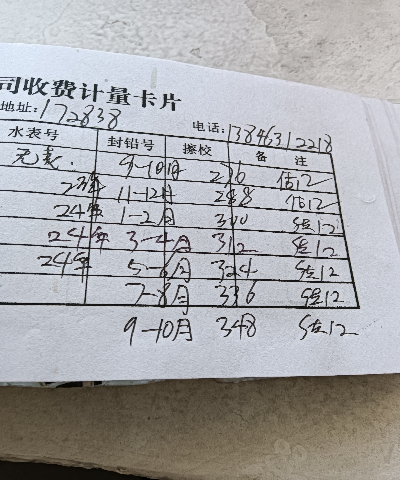 司收费计量卡片
地址:172838 电话:13846312218
水表号 封铅号 擦校 备注
无表. 9-10月 276 估12
23年 11-12月 288 估12
24年 1-2月 300 估12
24年 3-4月 312 估12
24年 5-6月 324 估12
7-8月 336 估12
9-10月 348 估12